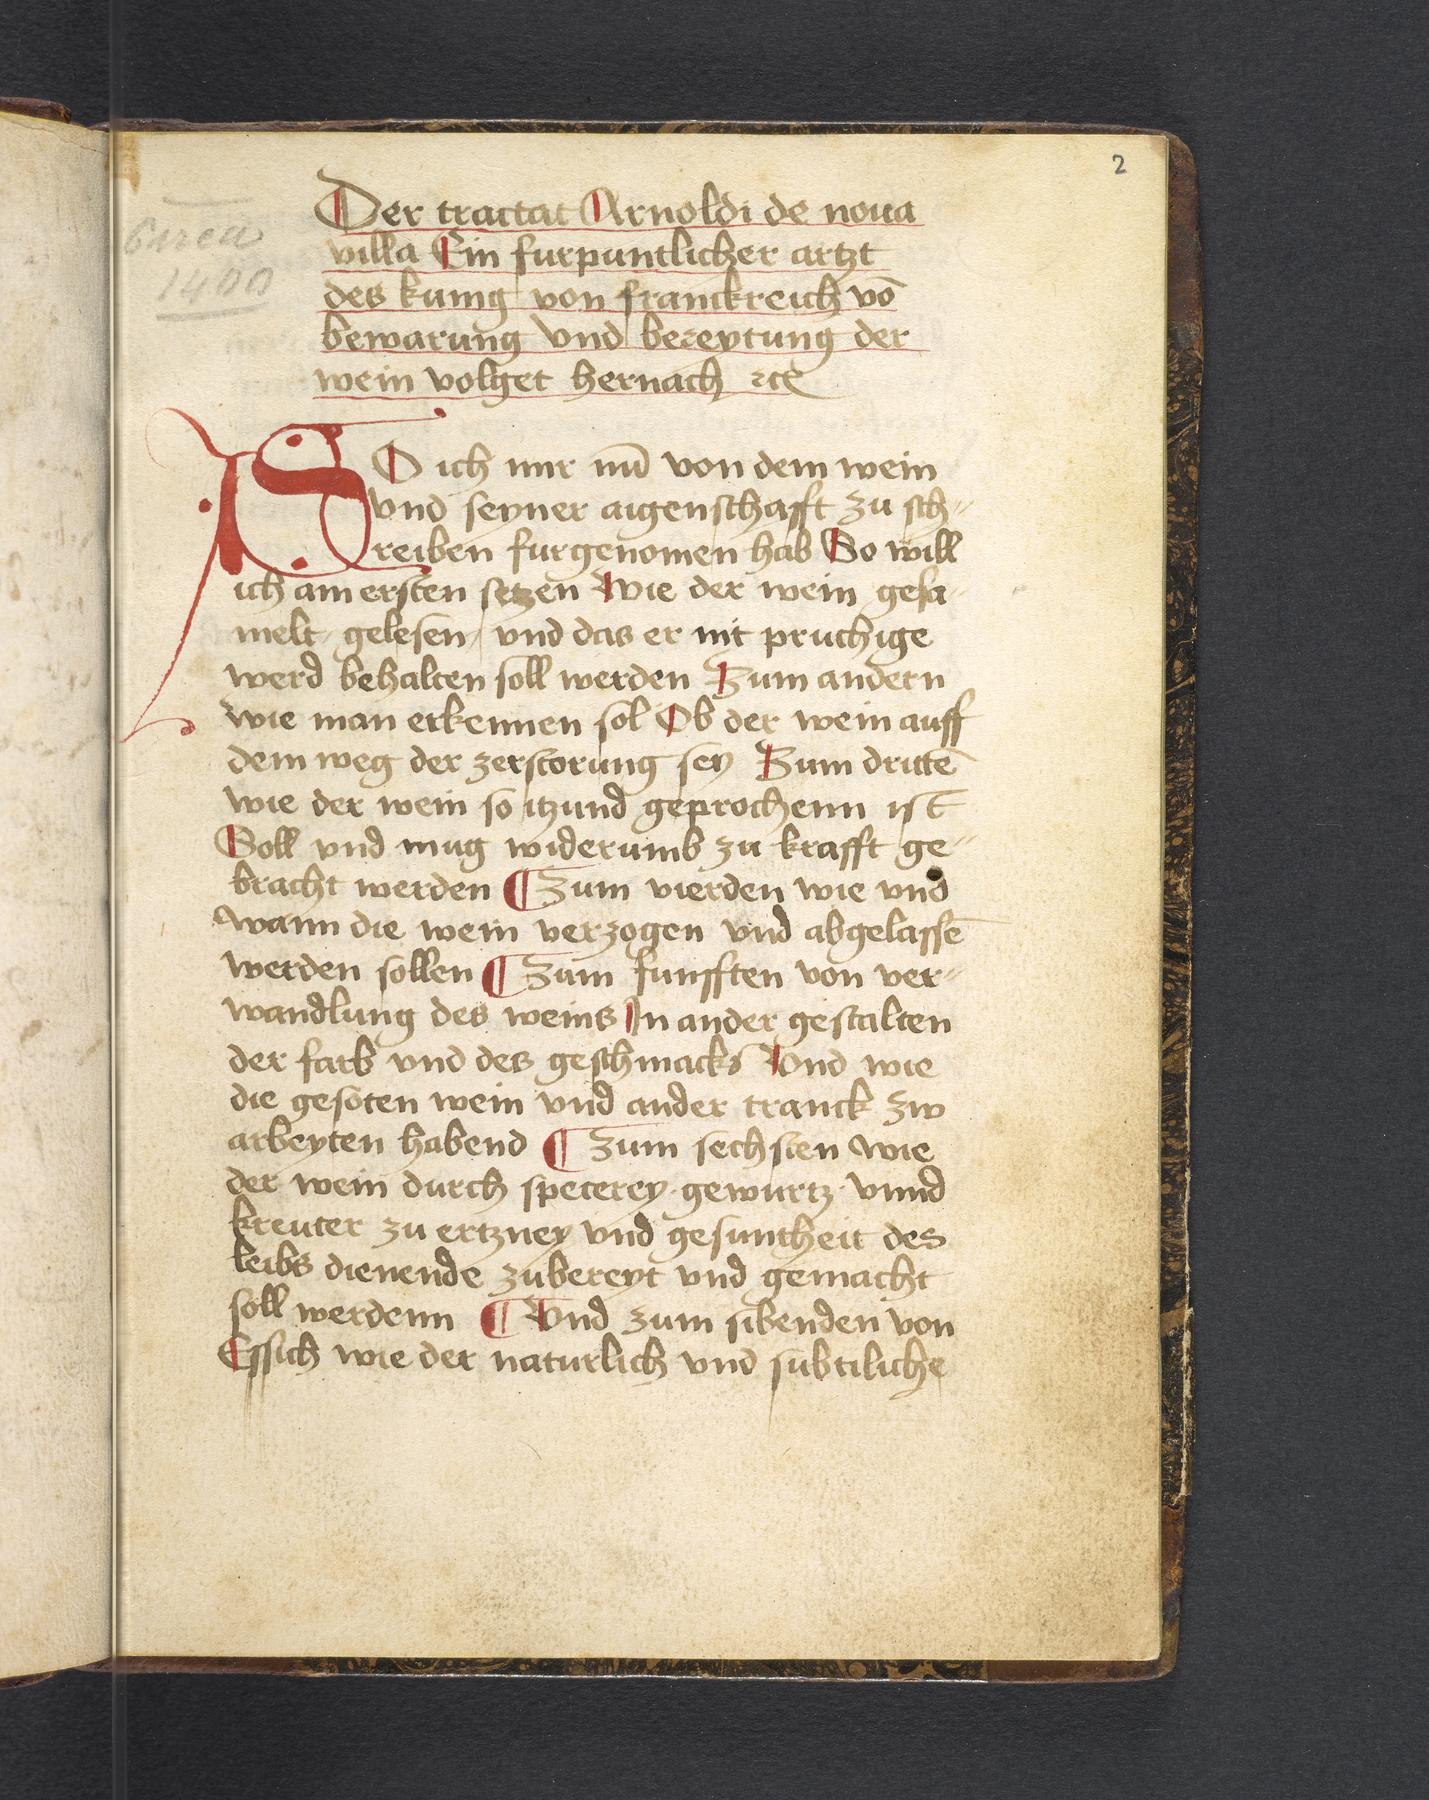 2
Circa
1400
Der tractat Arnoldi de noua
villa Ein furpuntlicher artzt
des kunig von franckreich vō
bewarung vnd bereytung der
wein volget hernach ꝛcͤ
SO ich mir nū von dem wein
vnd seyner aigenschafft zu sch-
reiben furgenomen hab So will
ich am ersten setzen Wie der wein gesa-
melt gelesen / vnd das er nit pruchige
werd behalten soll werden Zum andern
wie man erkennen sol Ob der wein auff
dem weg der zerstorung sey Zum drittē
wie der wein so itzund geprochenn ist
Soll vnd mug widerumb zu krafft ge-
bracht werden ¶ Zum vierden wie vnd
wann die wein verzogen vnd abgelassē
werden sollen ¶ Zum funfften von ver-
wandlung des weins In ander gestalten
der farb vnd des geschmacks Vnd wie
die gesoten wein vnd ander tranck zw
arbeyten habend ¶ Zum sechsten wie
der wein durch specerey gewurtz vnnd
kreuter zu ertzney vnd gesuntheit des
leibs dienende zubereyt vnd gemacht
soll werdenn ¶ Vnd zum sibenden von
Essich wie der naturlich vnd subtiliche